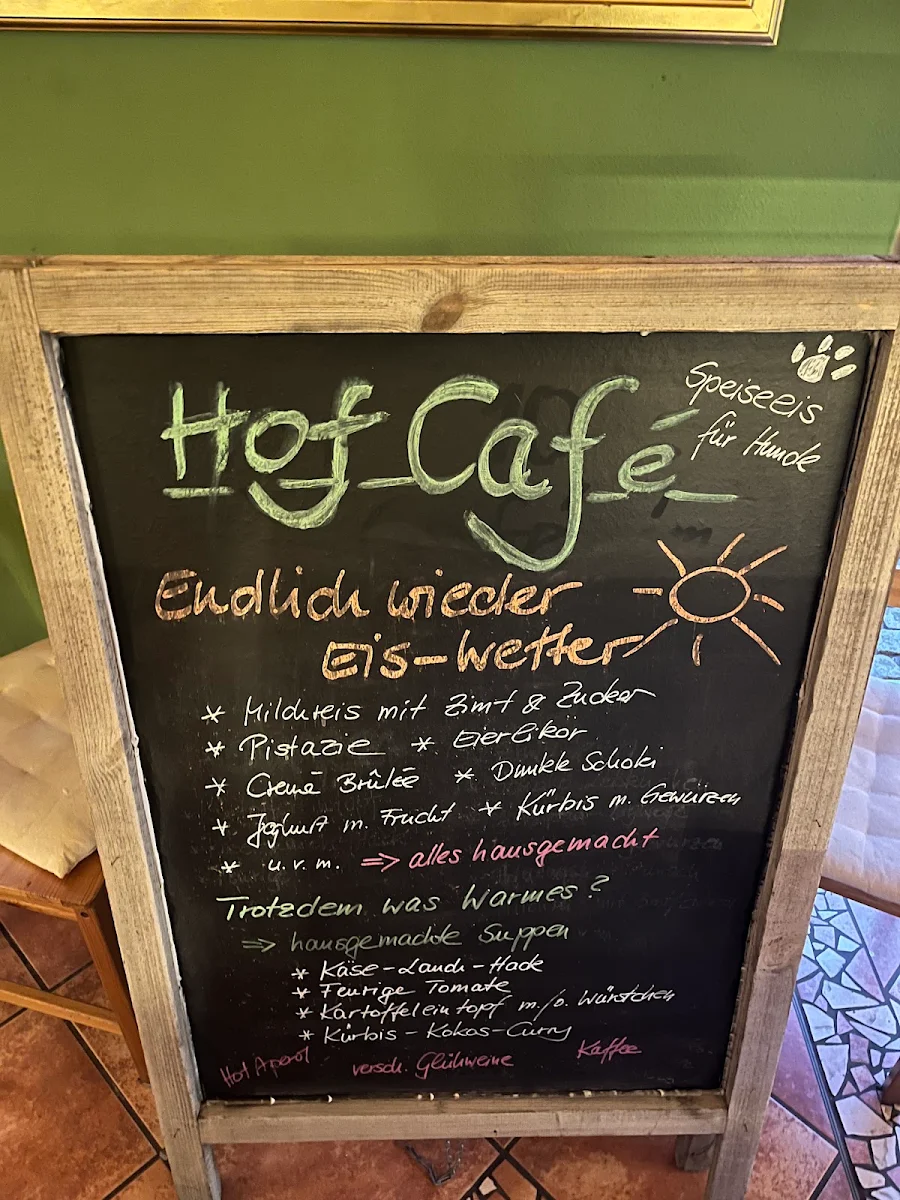 Hof Café
Speiseeis
für Hunde
Endlich wieder
Eis-Wetter
* Milchreis mit Zimt & Zucker
* Pistazie * Eierlikör
* Cremé Brûlée * Dunkle Schoki
* Joghurt m. Frucht * Kürbis m. Gewürzen
* u.v.m. => alles hausgemacht
Trotzdem was Warmes?
=> hausgemachte Suppen
* Käse-Lauch-Hack
* Feurige Tomate
* Kartoffeleintopf m./o. Würstchen
* Kürbis-Kokos-Curry
Hot Aperol versch. Glühweine Kaffee